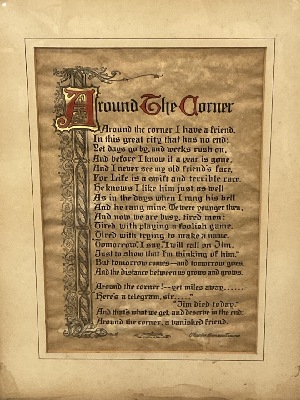 Around The Corner
Around the corner I have a friend,
In this great city that has no end;
Yet days go by, and weeks rush on,
And before I know it a year is gone,
And I never see my old friend's face,
For Life is a swift and terrible race.
He knows I like him just as well
As in the days when I rang his bell
And he rang mine. We were younger then,
And now we are busy, tired men:
Tired with playing a foolish game,
Tired with trying to make a name.
"Tomorrow," I say, "I will call on Jim,
Just to show that I'm thinking of him."
But tomorrow comes—and tomorrow goes,
And the distance between us grows and grows.
Around the corner!—yet miles away......
"Here's a telegram, sir....."
"Jim died today."
And that's what we get, and deserve in the end:
Around the corner, a vanished friend.